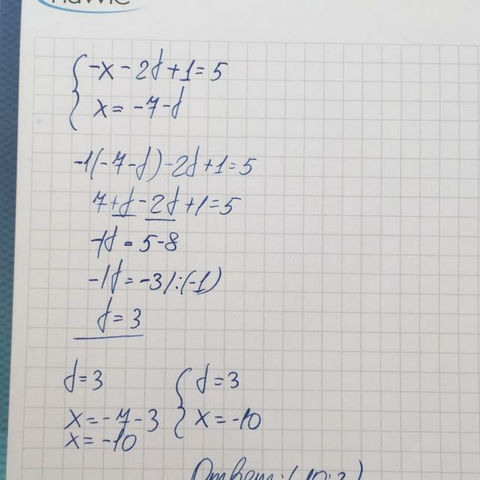 { -x - 2y + 1 = 5
x = -7 - y
-1(-7 - y) - 2y + 1 = 5
7 + y - 2y + 1 = 5
-1y = 5 - 8
-1y = -3 /:(-1)
y = 3
y = 3 { y = 3
x = -7 - 3 x = -10
x = -10
Ответ: (-10; 3)